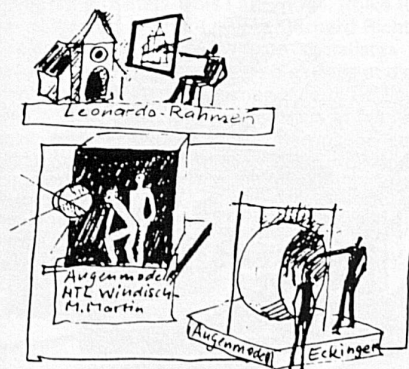 Leonardo-Rahmen
Augenmodell
HTL Windisch
M. Martin
Augenmodell Eckinger